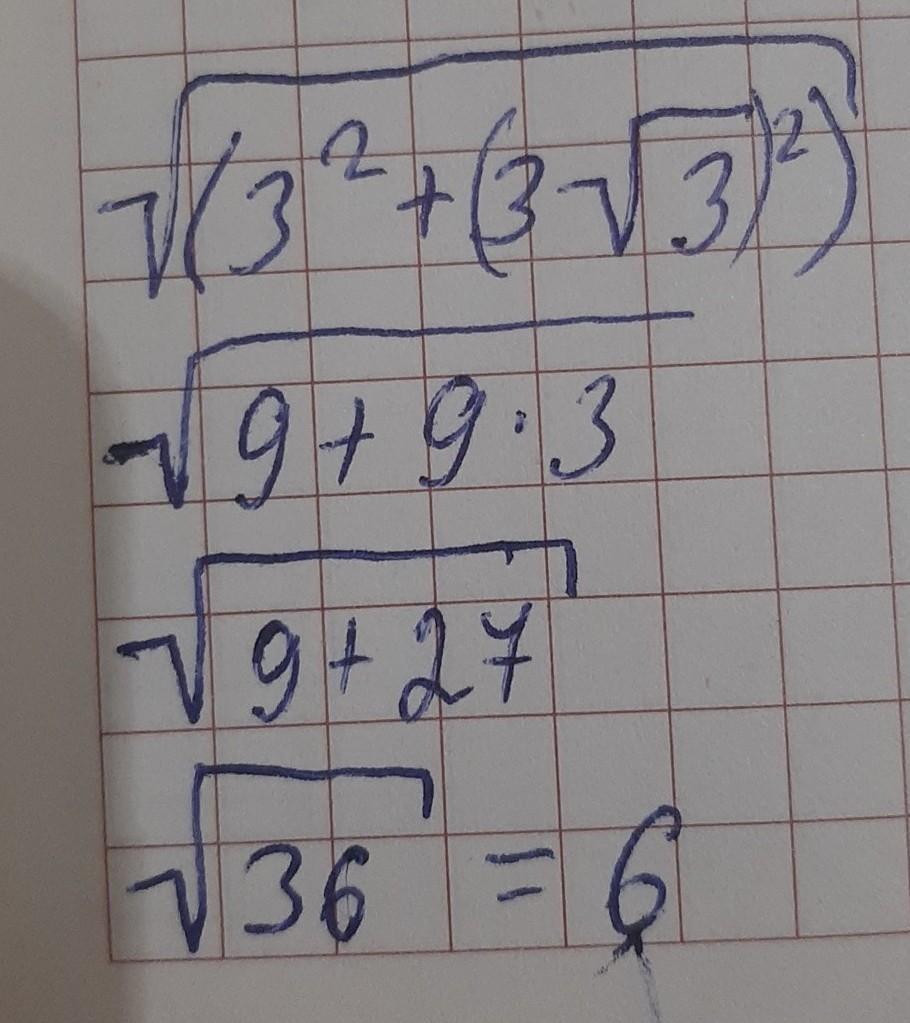 √(3² + (3√3)²)
√9 + 9 · 3
√9 + 27
√36 = 6